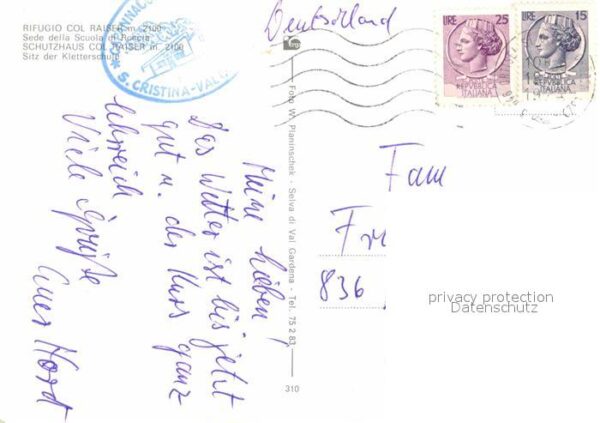 RIFUGIO COL RAISER m. 2100
Sede della Scuola di Roccia
SCHUTZHAUS COL RAISER m. 2100
Sitz der Kletterschule
S. CRISTINA-VALG
Deutschland
LIRE 25
REPVBBLICA
ITALIANA
LIRE 15
REPVBBLICA
ITALIANA
Meine Lieben!
Das Wetter ist bis jetzt
gut u. der Kurs ganz
lehrreich
Viele Grüße
Euer Horst
Foto W. Planinschek - Selva di Val Gardena - Tel. 75 2 83
310
Fam
Fr
836
privacy protection
Datenschutz